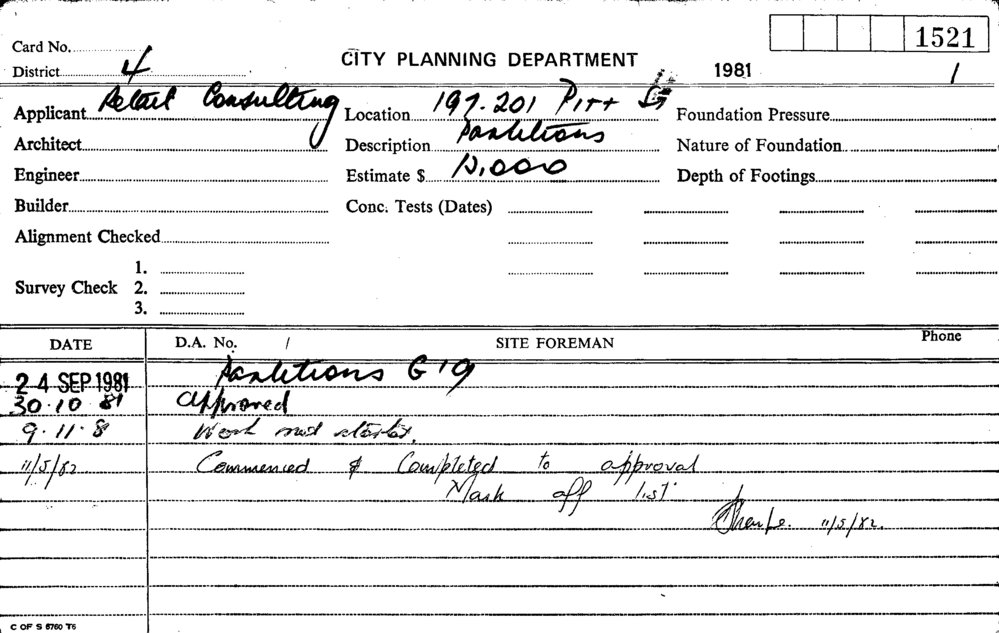 1521
Card No.
CITY PLANNING DEPARTMENT
District 4
1981 1
Applicant Retail Consulting
Location 197.201 Pitt St
Foundation Pressure
Architect
Description Partitions
Nature of Foundation
Engineer
Estimate $ 12,000
Depth of Footings
Builder
Conc. Tests (Dates)
Alignment Checked
1.
Survey Check 2.
3.
DATE D.A. No. / SITE FOREMAN Phone
24 SEP 1981 Partitions G'19
30.10 81 Approved
9.11.8 Work not started.
11/5/82 Commenced & Completed to approval
Mark off list
11/5/82.
C OF S 6760 T6